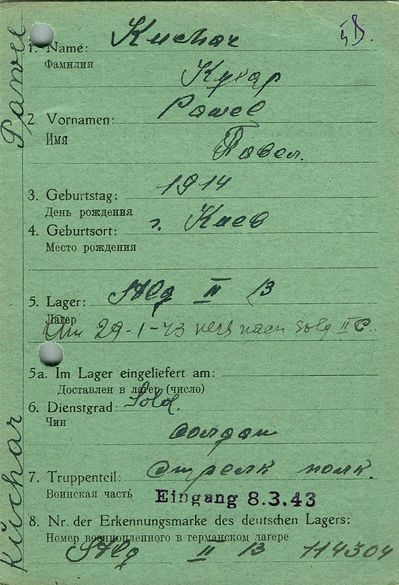 IB.
1. Name: Kuchar
Фамилия
Кухар
2. Vornamen: Pawel
Имя
Павел.
3. Geburtstag: 1914
День рождения
4. Geburtsort: г. Киев
Место рождения
5. Lager: Stlg II B
Лагер
Am 29-1-43 vers nach Stlg II C.
5a. Im Lager eingeliefert am:
Доставлен в лагер (число)
6. Dienstgrad: Sold.
Чин
солдат
7. Truppenteil: Стрелк полк.
Воинская часть
Eingang 8.3.43
8. Nr. der Erkennungsmarke des deutschen Lagers:
Номер военнопленного в германском лагере
Stlg II B 114304
Kuchar
Pawel